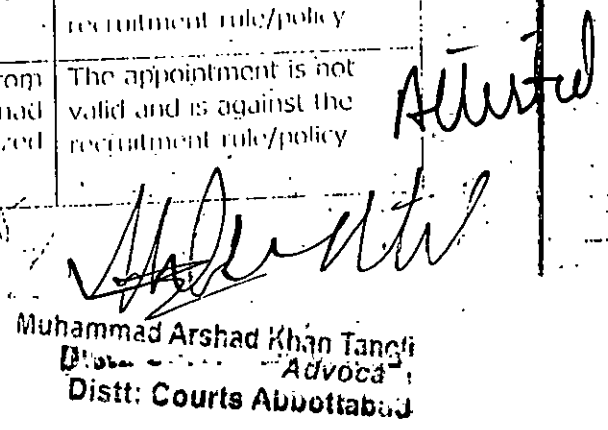 recruitment rule/policy
The appointment is not
valid and is against the
recruitment rule/policy
Attested
Muhammad Arshad Khan
Advoca
Distt: Courts Abbottabad